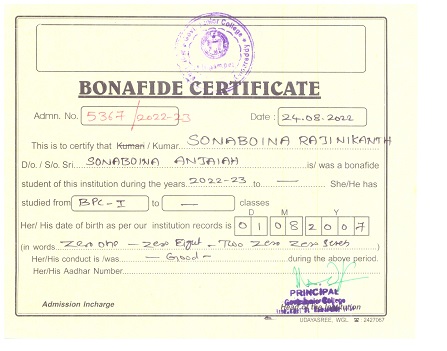 BONAFIDE CERTIFICATE
Admn. No. 5367/2022-23 Date : 24.08.2022
This is to certify that Kuman / Kumar. SONABOINA RAJINIKANTH
D/o. / S/o. Sri. SONABOINA ANJAIAH is/ was a bonafide
student of this institution during the years. 2022-23 to — She/He has
studied from BPC-I to — classes
D M Y
Her/ His date of birth as per our institution records is 0 1 0 8 2 0 0 7
(in words Zero one - Zero Eight - Two Zero Zero Seven )
Her/His conduct is /was — Good - during the above period.
Her/His Aadhar Number
PRINCIPAL
Admission Incharge Head of the Institution
UDAYASREE, WGL ☎: 2427067